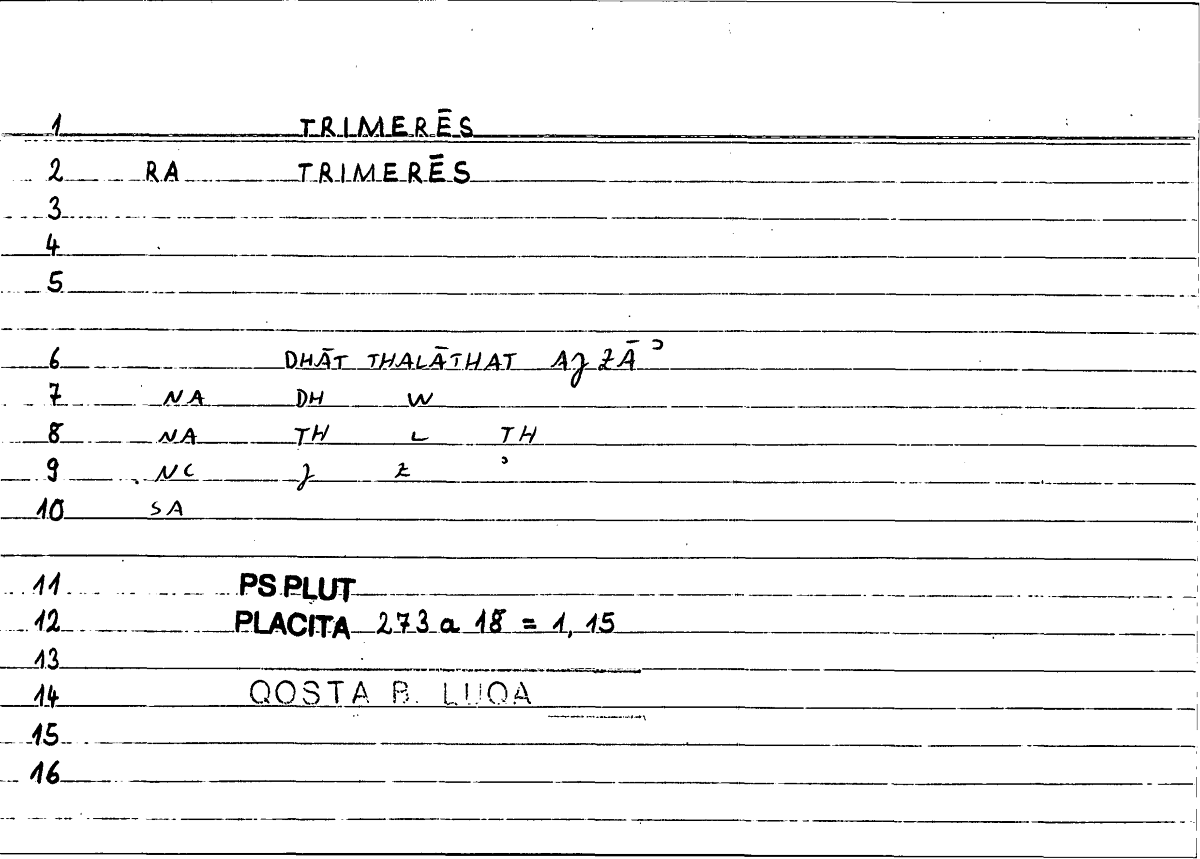 1 TRIMERĒS
2 RA TRIMERĒS
3
4
5
6 DHĀT THALĀTHAT AJZĀʾ
7 NA DH W
8 NA TH L TH
9 NC J Z ʾ
10 SA
11 PS.PLUT
12 PLACITA 273 a 18 = 1, 15
13
14 QOSTA B. LUQA
15
16